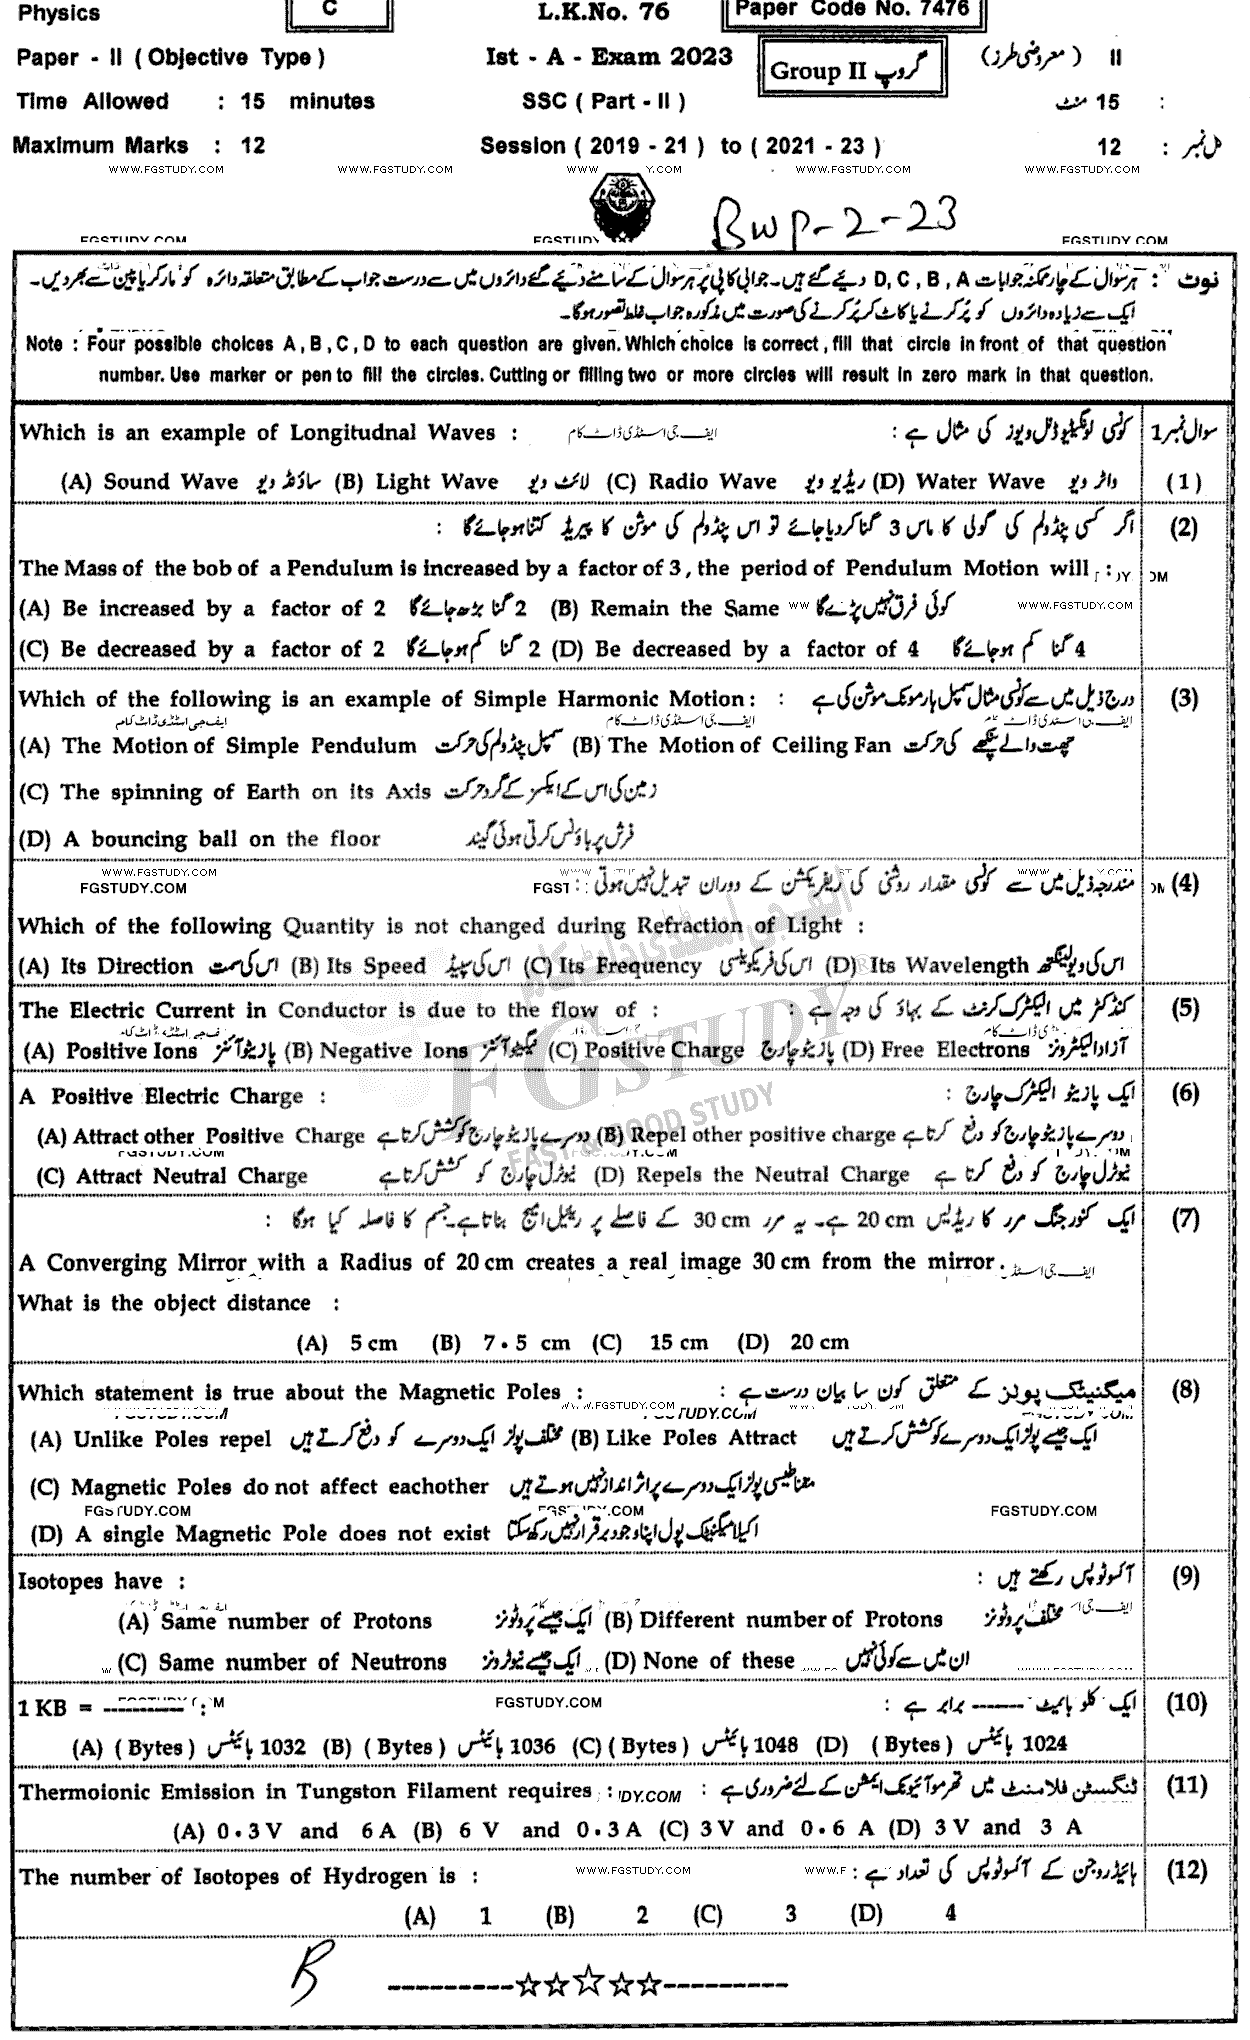 Physics
C
L.K.No. 76
Paper Code No. 7476
Paper - II ( Objective Type )
Ist - A - Exam 2023
Group II گروپ
II ( معروضی طرز )
Time Allowed : 15 minutes
SSC ( Part - II )
15 منٹ :
Maximum Marks : 12
Session ( 2019 - 21 ) to ( 2021 - 23 )
12 : کل نمبر
WWW.FGSTUDY.COM WWW.FGSTUDY.COM WWW.FGSTUDY.COM WWW.FGSTUDY.COM
BWP-2-23
FGSTUDY.COM FGSTUDY.COM
نوٹ : ہر سوال کے چار ممکنہ جوابات D, C, B, A دیئے گئے ہیں۔ جوابی کاپی پر ہر سوال کے سامنے دیئے گئے دائروں میں سے درست جواب کے مطابق متعلقہ دائرہ کو مارکر یا پین سے بھر دیں۔
ایک سے زیادہ دائروں کو پُر کرنے یا کاٹ کر پُر کرنے کی صورت میں مذکورہ جواب غلط تصور ہوگا۔
Note : Four possible choices A , B , C , D to each question are given. Which choice is correct , fill that circle in front of that question
number. Use marker or pen to fill the circles. Cutting or filling two or more circles will result in zero mark in that question.
Which is an example of Longitudnal Waves : ایف جی اسٹڈی ڈاٹ کام کونسی لونگیٹیوڈنل ویوز کی مثال ہے : سوال نمبر 1
(A) Sound Wave ساؤنڈ ویو (B) Light Wave لائٹ ویو (C) Radio Wave ریڈیو ویو (D) Water Wave واٹر ویو (1)
اگر کسی پنڈولم کی گولی کا ماس 3 گنا کر دیا جائے تو اس پنڈولم کی موشن کا پیریڈ کتنا ہو جائے گا : (2)
The Mass of the bob of a Pendulum is increased by a factor of 3 , the period of Pendulum Motion will :
(A) Be increased by a factor of 2 2 گنا بڑھ جائے گا (B) Remain the Same کوئی فرق نہیں پڑے گا WWW.FGSTUDY.COM
(C) Be decreased by a factor of 2 2 گنا کم ہو جائے گا (D) Be decreased by a factor of 4 4 گنا کم ہو جائے گا
Which of the following is an example of Simple Harmonic Motion : درج ذیل میں سے کونسی مثال سمپل ہارمونک موشن کی ہے : (3)
ایف جی اسٹڈی ڈاٹ کام ایف جی اسٹڈی ڈاٹ کام
(A) The Motion of Simple Pendulum سمپل پنڈولم کی حرکت (B) The Motion of Ceiling Fan چھت والے پنکھے کی حرکت
(C) The spinning of Earth on its Axis زمین کی اس کے ایکسز کے گرد حرکت
(D) A bouncing ball on the floor فرش پر باؤنس کرتی ہوئی گیند
WWW.FGSTUDY.COM
FGSTUDY.COM مندرجہ ذیل میں سے کونسی مقدار روشنی کی ریفریکشن کے دوران تبدیل نہیں ہوتی : (4)
Which of the following Quantity is not changed during Refraction of Light :
(A) Its Direction اس کی سمت (B) Its Speed اس کی سپیڈ (C) Its Frequency اس کی فریکوئنسی (D) Its Wavelength اس کی ویولینگتھ
The Electric Current in Conductor is due to the flow of : کنڈکٹر میں الیکٹرک کرنٹ کے بہاؤ کی وجہ ہے : (5)
(A) Positive Ions پازیٹو آئنز (B) Negative Ions نیگیٹو آئنز (C) Positive Charge پازیٹو چارج (D) Free Electrons آزاد الیکٹرونز
FGSTUDY
FAST & GOOD STUDY
A Positive Electric Charge : ایک پازیٹو الیکٹرک چارج : (6)
(A) Attract other Positive Charge دوسرے پازیٹو چارج کو کشش کرتا ہے (B) Repel other positive charge دوسرے پازیٹو چارج کو دفع کرتا ہے
(C) Attract Neutral Charge نیوٹرل چارج کو کشش کرتا ہے (D) Repels the Neutral Charge نیوٹرل چارج کو دفع کرتا ہے
ایک کنورجنگ مرر کا ریڈیس 20 cm ہے۔ یہ مرر 30 cm کے فاصلے پر رئیل امیج بناتا ہے۔ جسم کا فاصلہ کیا ہوگا : (7)
A Converging Mirror with a Radius of 20 cm creates a real image 30 cm from the mirror .
What is the object distance :
(A) 5 cm (B) 7.5 cm (C) 15 cm (D) 20 cm
Which statement is true about the Magnetic Poles : میگنیٹک پولز کے متعلق کون سا بیان درست ہے : (8)
(A) Unlike Poles repel مختلف پولز ایک دوسرے کو دفع کرتے ہیں (B) Like Poles Attract ایک جیسے پولز ایک دوسرے کو کشش کرتے ہیں
(C) Magnetic Poles do not affect eachother مقناطیسی پولز ایک دوسرے پر اثر انداز نہیں ہوتے ہیں
FGSTUDY.COM FGSTUDY.COM FGSTUDY.COM
(D) A single Magnetic Pole does not exist اکیلا میگنیٹک پول اپنا وجود برقرار نہیں رکھ سکتا
Isotopes have : آئسوٹوپس رکھتے ہیں : (9)
(A) Same number of Protons ایک جیسے پروٹونز (B) Different number of Protons مختلف پروٹونز
(C) Same number of Neutrons ایک جیسے نیوٹرونز (D) None of these ان میں سے کوئی نہیں
1 KB = ----------- : FGSTUDY.COM ایک کلو بائیٹ ------ برابر ہے : (10)
(A) ( Bytes ) بائیٹس 1032 (B) ( Bytes ) بائیٹس 1036 (C) ( Bytes ) بائیٹس 1048 (D) ( Bytes ) بائیٹس 1024
Thermoionic Emission in Tungston Filament requires : ٹنگسٹن فلامنٹ میں تھرموآئیونک ایمشن کے لئے ضروری ہے : (11)
(A) 0.3 V and 6 A (B) 6 V and 0.3 A (C) 3 V and 0.6 A (D) 3 V and 3 A
The number of Isotopes of Hydrogen is : WWW.FGSTUDY.COM ہائیڈروجن کے آئسوٹوپس کی تعداد ہے : (12)
(A) 1 (B) 2 (C) 3 (D) 4
B
----------☆☆☆☆☆----------